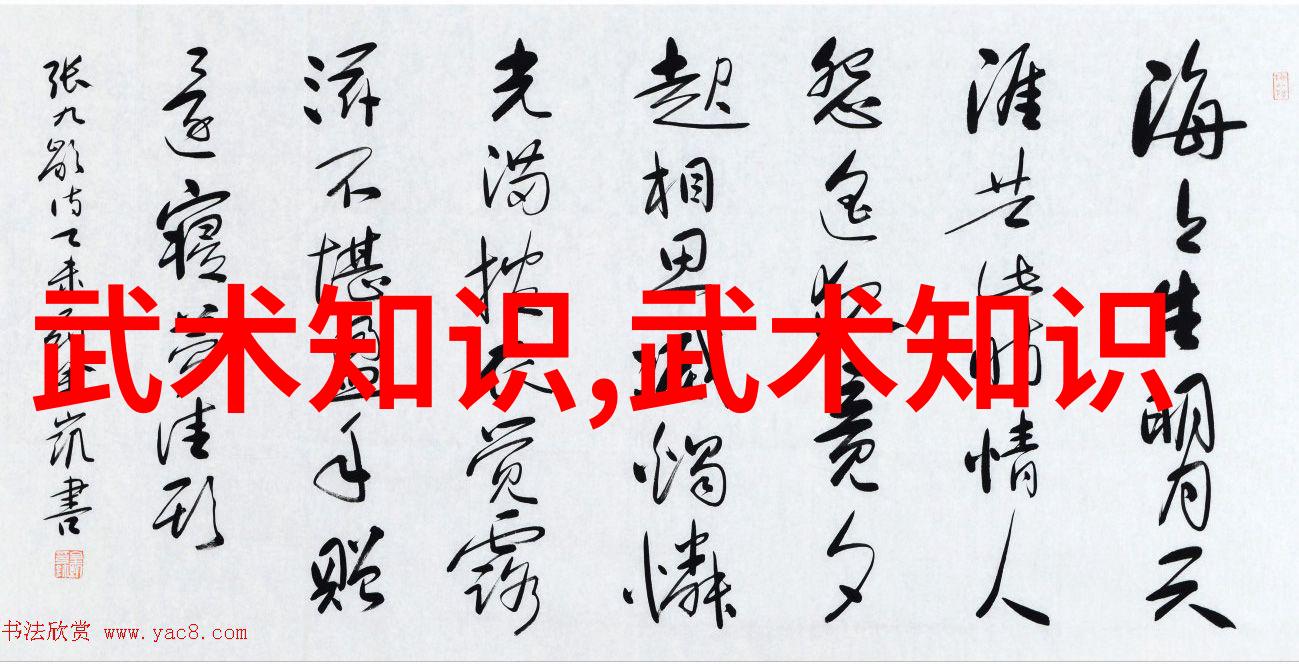 海上生明月天
涯共此时情人
怨遥夜竟夕
起相思滅燭憐
光满披衣觉露
滋不堪盈手赠
還寝梦佳期
张九龄诗乙未凯書
武术知识,武术知识
书法欣赏 www.yac8.com